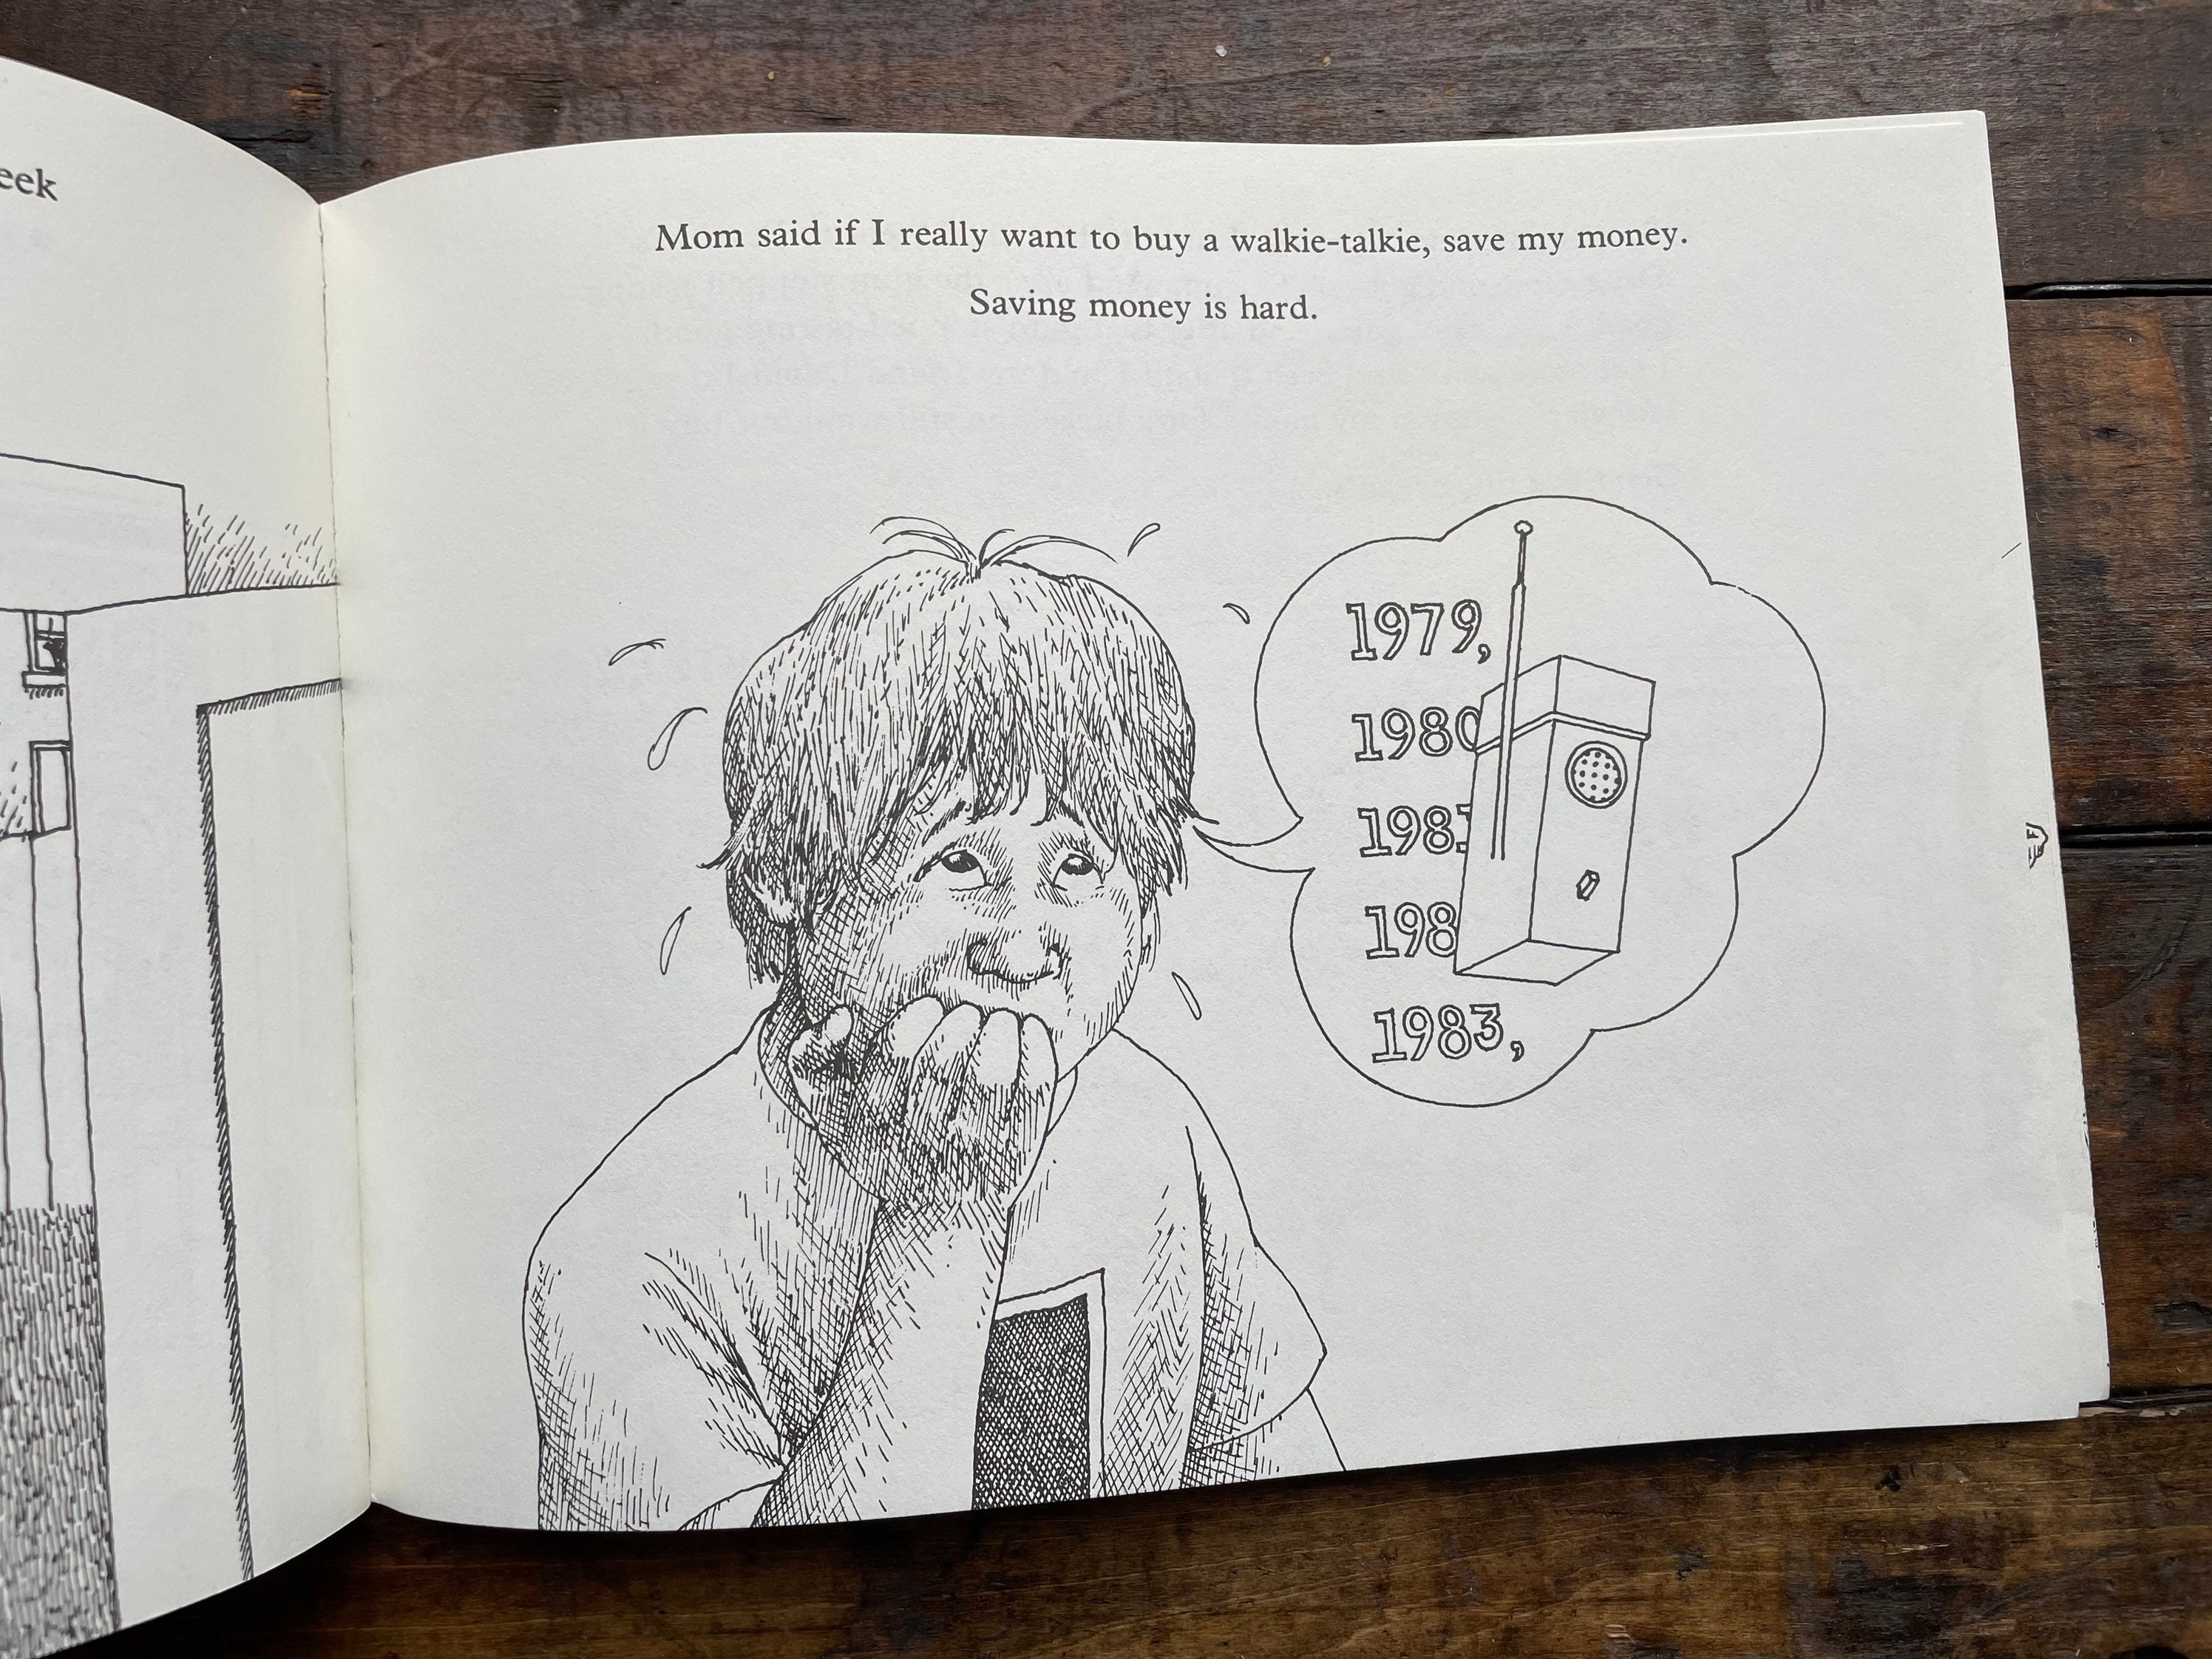 Mom said if I really want to buy a walkie-talkie, save my money.
Saving money is hard.
1979,
1980
1981
198
1983,